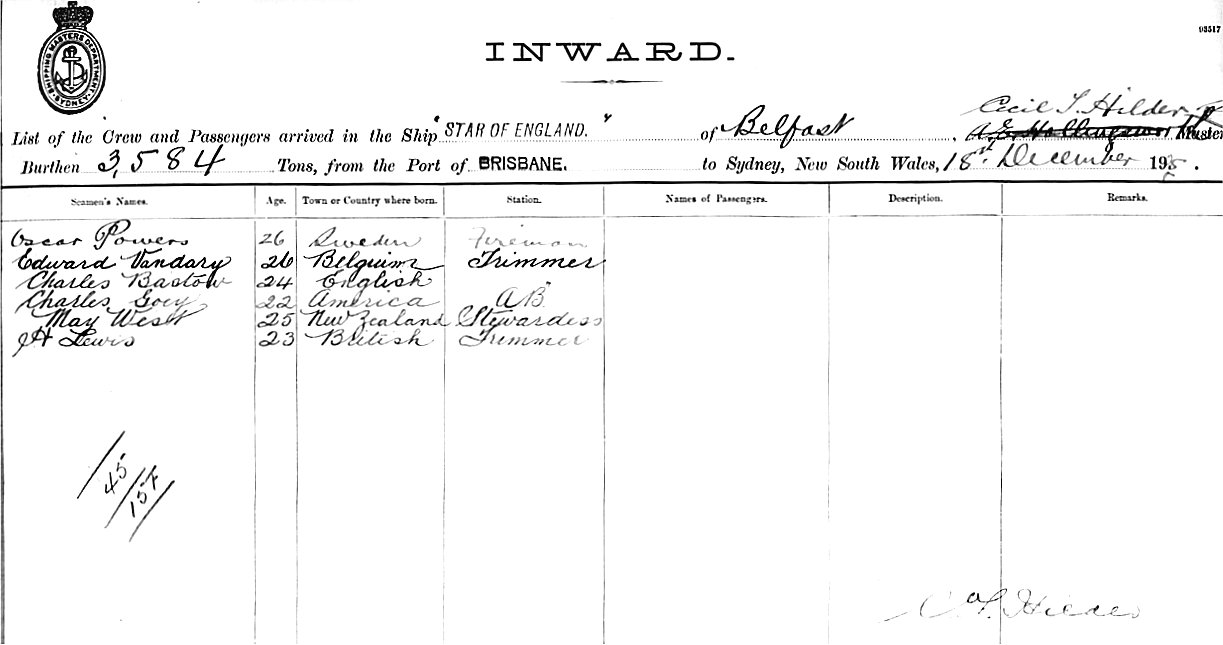 SHIPPING MASTERS DEPARTMENT SYDNEY
03517
INWARD.
Cecil T. Hilder
List of the Crew and Passengers arrived in the Ship "STAR OF ENGLAND." of Belfast, A.E. Hollingsworth Master
Burthen 3,584 Tons, from the Port of BRISBANE. to Sydney, New South Wales, 18 December 19
Seamen's Names. Age. Town or Country where born. Station. Names of Passengers. Description. Remarks.
Oscar Powers 26 Sweden Fireman
Edward Vandary 26 Belguim Trimmer
Charles Bastow 24 English
Charles Goey 22 America AB
May West 25 New Zealand Stewardess
H Lewis 23 British Trimmer
45
157
Hilder